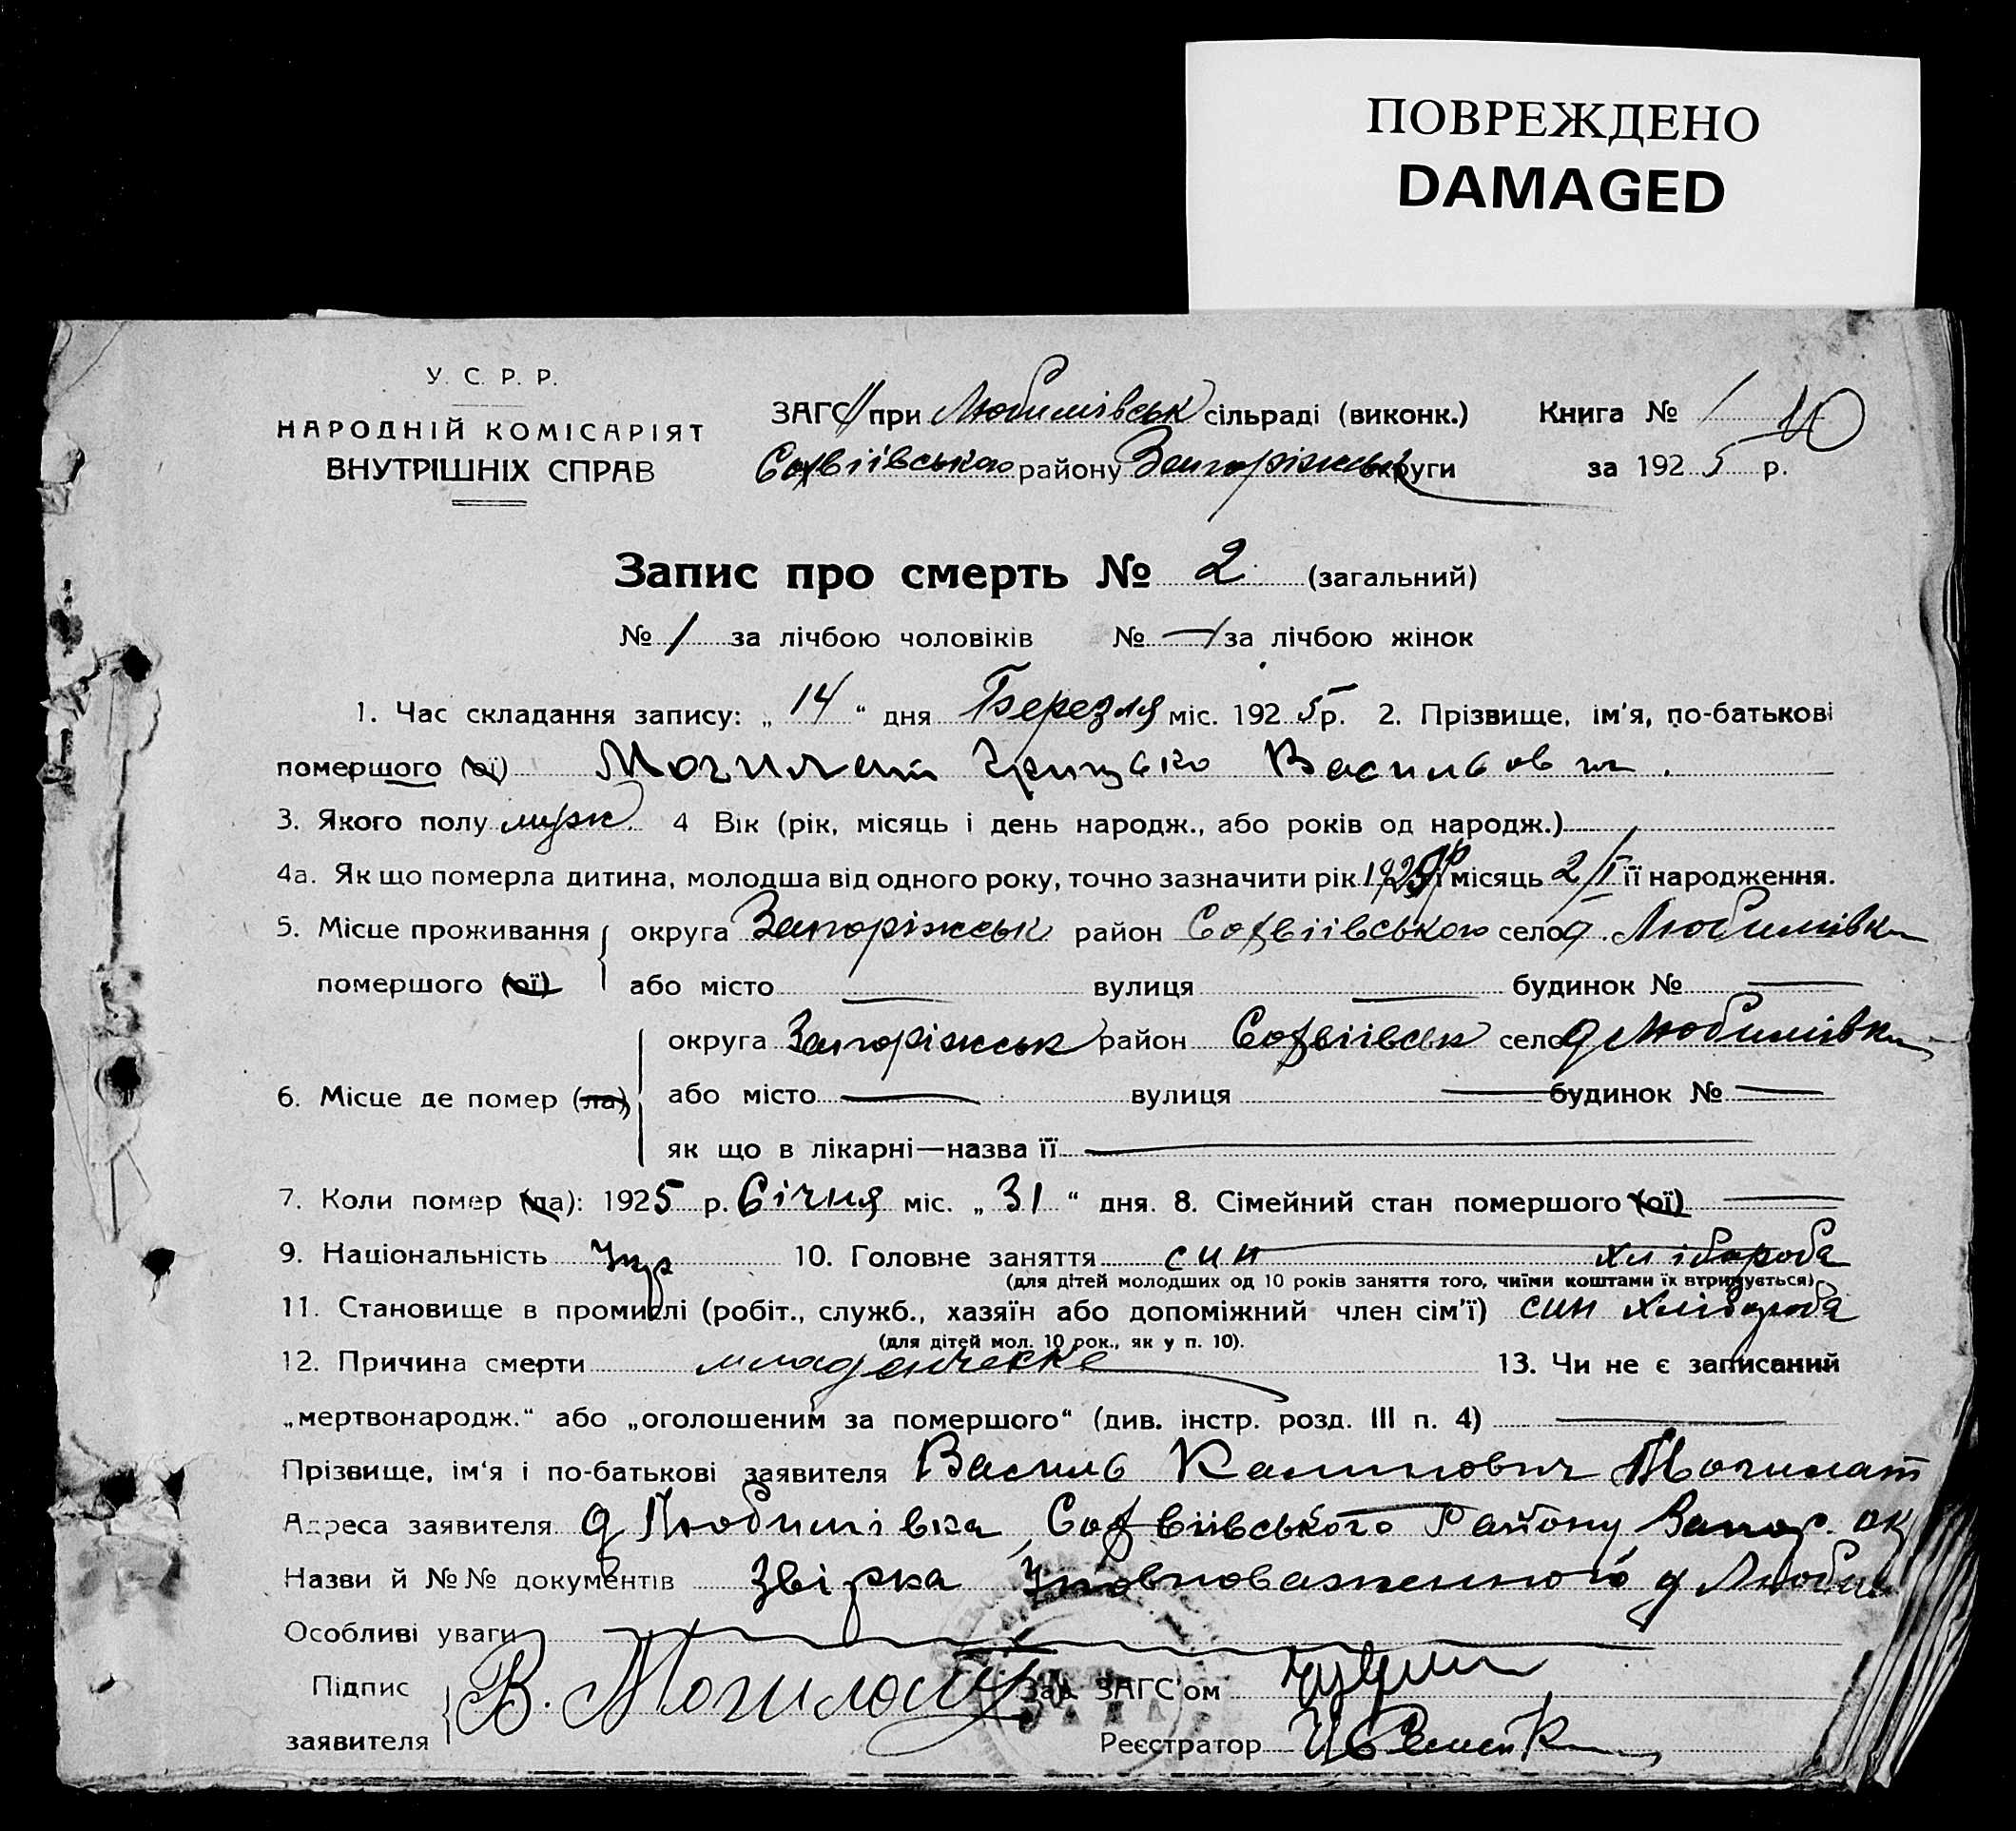 ПОВРЕЖДЕНО
DAMAGED
У. С. Р. Р.
НАРОДНІЙ КОМІСАРІЯТ
ВНУТРІШНІХ СПРАВ
ЗАГС при Любимівськ сільраді (виконк.) Книга № 1 10
Софіївського району Запоріжськ округи за 1925 р.
Запис про смерть № 2 (загальний)
№ 1 за лічбою чоловіків № — за лічбою жінок
1. Час складання запису: „ 14 “ дня Березля міс. 1925 р. 2. Прізвище, ім'я, по-батькові
помершого (ої) Могилат Грицько Васильов
3. Якого полу муж. 4 Вік (рік, місяць і день народж., або років од народж.)
4а. Як що померла дитина, молодша від одного року, точно зазначити рік 1925 місяць 2/I її народження.
5. Місце проживання округа Запоріжськ район Софвіівського село д. Любимівка
помершого (ої) або місто — вулиця — будинок № —
6. Місце де помер (ла) округа Запоріжськ район Софвіівськ село д Любимівка
або місто — вулиця — будинок № —
як що в лікарні—назва її —
7. Коли помер (ла): 1925 р. Січня міс. „ 31 “ дня. 8. Сімейний стан помершого (ої) —
9. Національність Укр 10. Головне заняття син хлібороба
(для дітей молодших од 10 років заняття того, чиїми коштами їх втримується)
11. Становище в промислі (робіт., служб., хазяїн або допоміжний член сім'ї) син хлібороба
(для дітей мол. 10 рок., як у п. 10).
12. Причина смерти младенческе 13. Чи не є записаний
„мертвонародж.“ або „оголошеним за помершого“ (див. інстр. розд. III п. 4) —
Прізвище, ім'я і по-батькові заявителя Василь Калинович Могилат
Адреса заявителя д Любимівка, Софвіівського Району Запор. ок
Назви й №№ документів Звірка Уповноваженного д Любим
Особливі уваги
Підпис
заявителя В. Могилат
Зав. ЗАГС'ом
Реєстратор